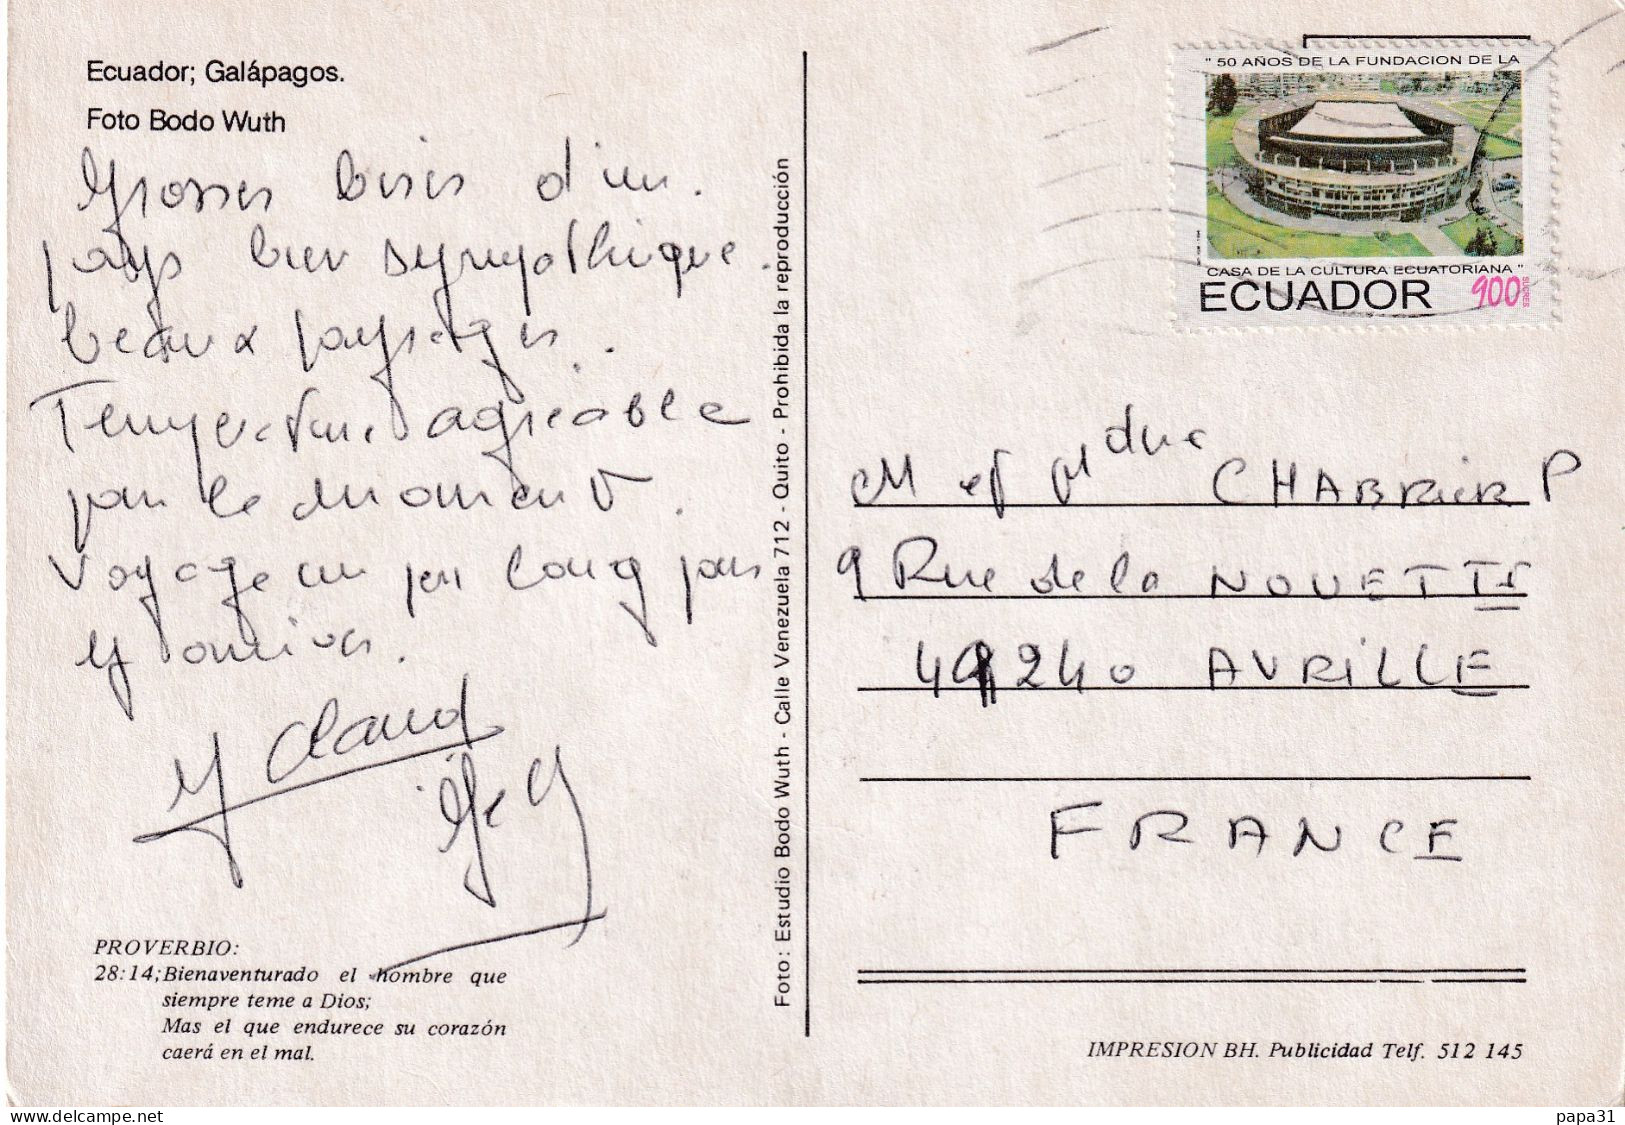 Ecuador; Galápagos.
Foto Bodo Wuth
Grosses bises d'un
pays bien sympathique.
beaux paysages.
Température agréable
pour le moment.
Voyage un peu long pour
y arriver.
Claud
PROVERBIO:
28:14; Bienaventurado el hombre que
siempre teme a Dios;
Mas el que endurece su corazón
caerá en el mal.
Foto: Estudio Bodo Wuth - Calle Venezuela 712 - Quito - Prohibida la reproducción
" 50 AÑOS DE LA FUNDACION DE LA
CASA DE LA CULTURA ECUATORIANA "
ECUADOR 900 SUCRES
M et Mdme CHABRIER P
9 Rue de la NOUETTE
49240 AVRILLE
FRANCE
IMPRESION BH. Publicidad Telf. 512 145
www.delcampe.net
papa31